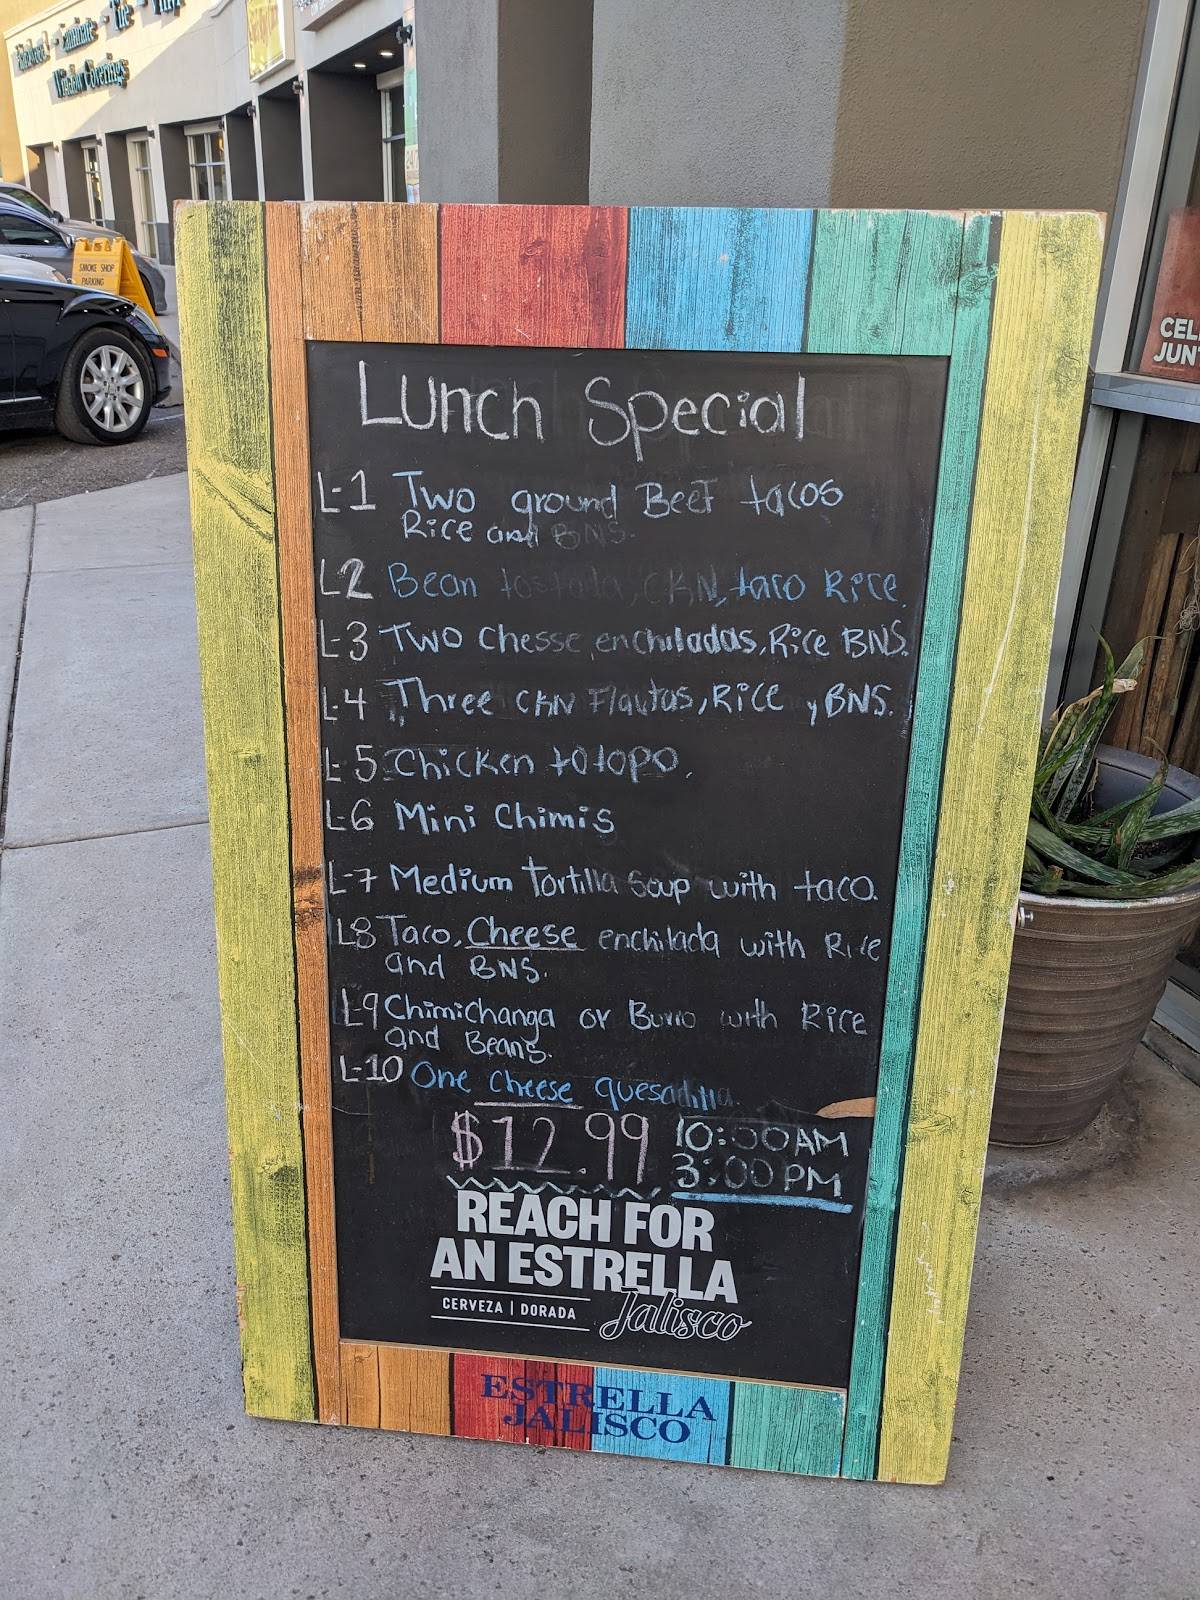 Hardwood - Laminate - Tile - Vinyl
Window Coverings
SMOKE SHOP
PARKING
CEL
JUN
Lunch Special
L-1 Two ground Beef tacos
Rice and BNS.
L2 Bean tostada, CKN, taco Rice.
L-3 Two Chesse, enchiladas, Rice BNS.
L-4 Three CKN Flautas, Rice y BNS.
L-5 Chicken totopo.
L-6 Mini Chimis
L-7 Medium Tortilla Soup with taco.
L8 Taco, Cheese enchilada with Rice
and BNS.
L-9 Chimichanga or Burro with Rice
and Beans.
L-10 One cheese quesadilla.
$12.99 10:00AM
3:00PM
REACH FOR
AN ESTRELLA
CERVEZA | DORADA Jalisco
ESTRELLA
JALISCO